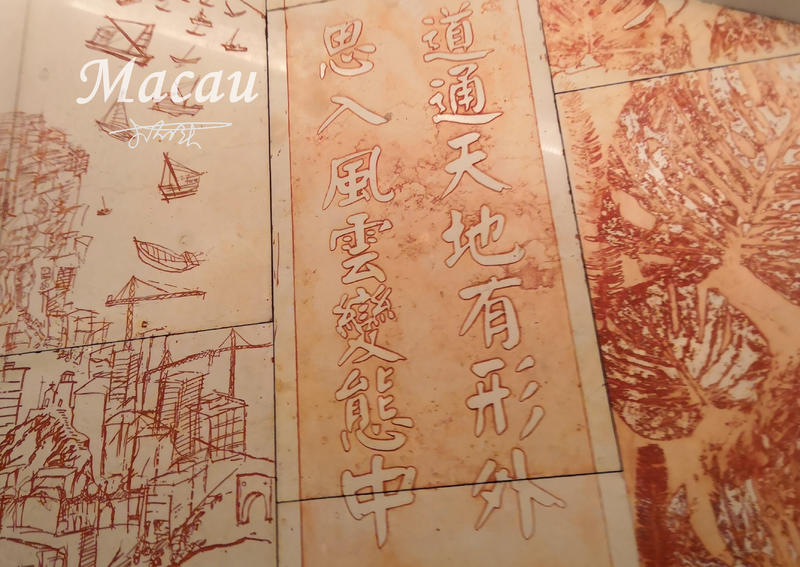 Macau
道通天地有形外
思入風雲變態中